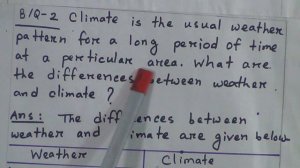 B/Q-2 Climate is the usual weather
pattern for a long period of time
at a perticular area. What are
the differences between weather
and climate ?
Ans: The diff ces between
weather and imate are given below
Weather Climate